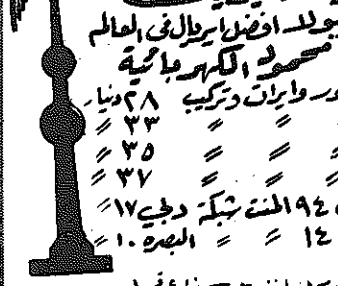 بولد افضل ايريال فى العالم
محمود الكهربائية
ور وايرات وتركيب ٢٨ دينار
〃 〃 ٣٣ 〃
〃 〃 ٣٥ 〃
〃 〃 ٣٧ 〃
٩٤ المنت شبكة دلجي ١٧ 〃
١٤ 〃 〃 البصره ١٠ 〃